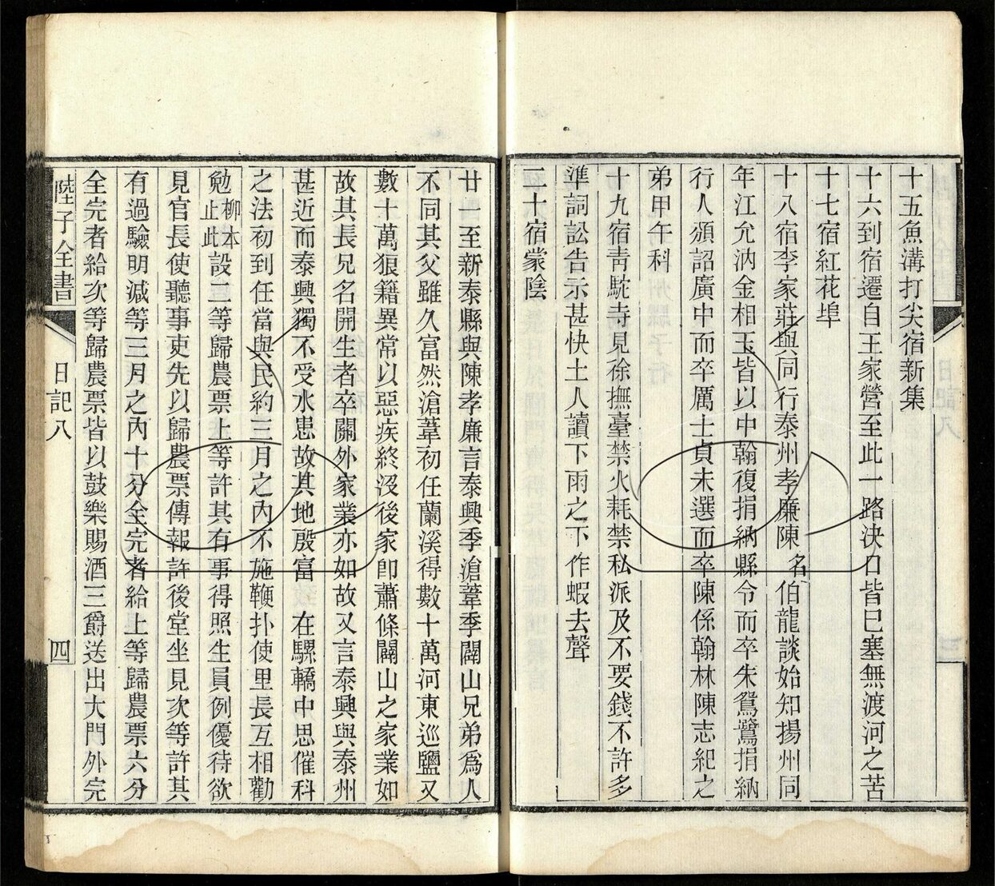 十五魚溝打尖宿新集
十六到宿遷自王家營至此一路決口皆已塞無渡河之苦
十七宿紅花埠
十八宿李家莊與同行泰州孝廉陳名伯龍談始知揚州同
年江允汭金相玉皆以中翰復捐納縣令而卒朱鴛鷺捐納
行人頒詔廣中而卒厲士貞未選而卒陳係翰林陳志紀之
弟甲午科
十九宿青駝寺見徐撫臺禁火耗禁私派及不要錢不許多
準詞訟告示甚快土人讀下雨之下作蝦去聲
二十宿蒙陰
廿一至新泰縣與陳孝廉言泰興季滄葦季闈山兄弟爲人
不同其父雖久富然滄葦初任蘭溪得數十萬河東巡鹽又
數十萬狼籍異常以惡疾終沒後家卽蕭條闈山之家業如
故其長兄名開生者卒關外家業亦如故又言泰興與泰州
甚近而泰興獨不受水患故其地殷富 在騾轎中思催科
之法初到任當與民約三月之內不施鞭扑使里長互相勸
勉柳本止此設二等歸農票上等許其有事得照生員例優待欲
見官長使聽事吏先以歸農票傳報許後堂坐見次等許其
有過驗明減等三月之內十分全完者給上等歸農票六分
全完者給次等歸農票皆以鼓樂賜酒三爵送出大門外完
陸子全書
日記八
四